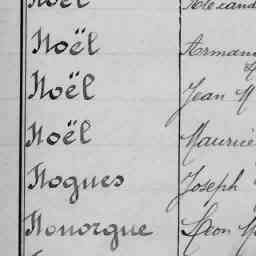 Noël
Noël Armand
Noël Jean M
Noël Maurice
Nogues Joseph
Nonorgue Léon M